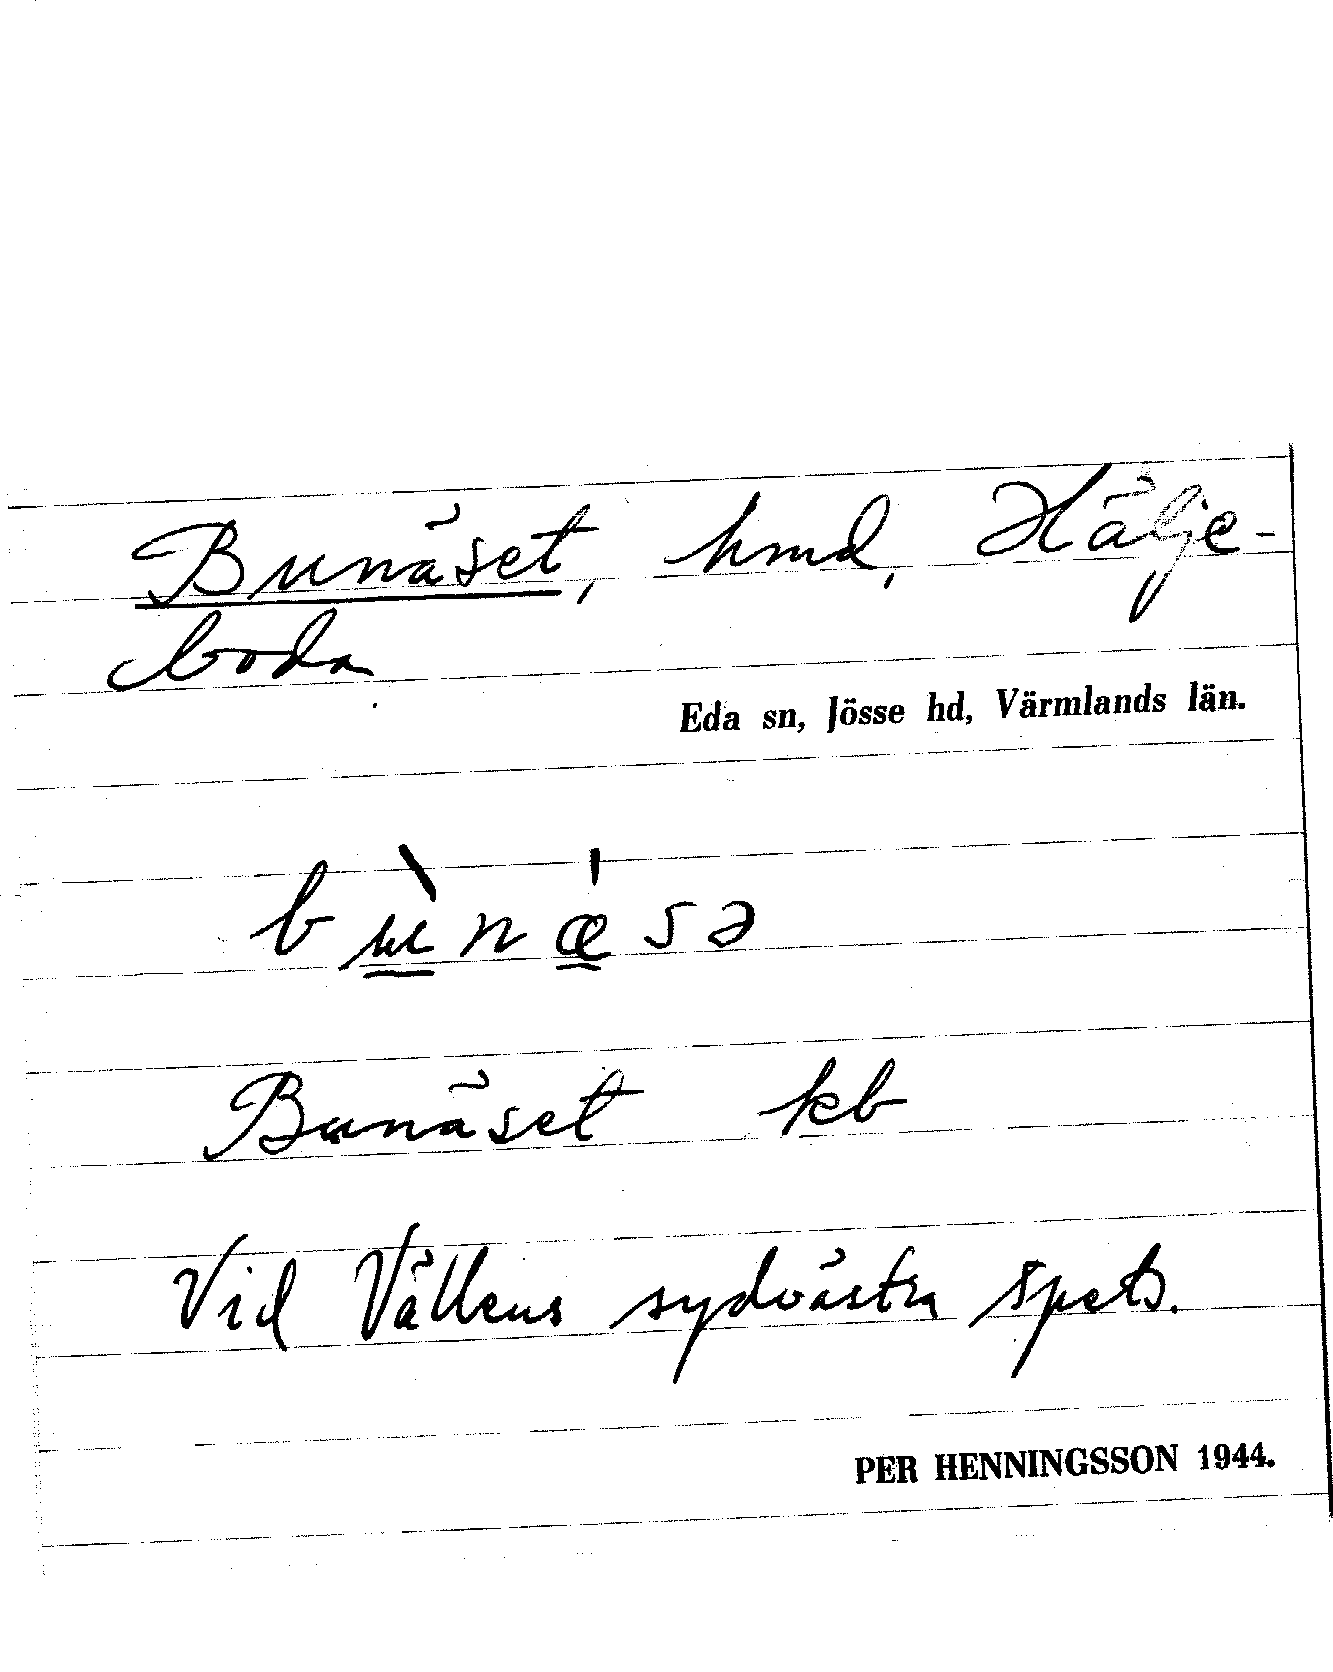 Bunäset, hmd, Hälje-
boda
Eda sn, Jösse hd, Värmlands län.
bù̲nǽ̲sə
Bunäset kb
Vid Vällens sydvästra spets.
PER HENNINGSSON 1944.